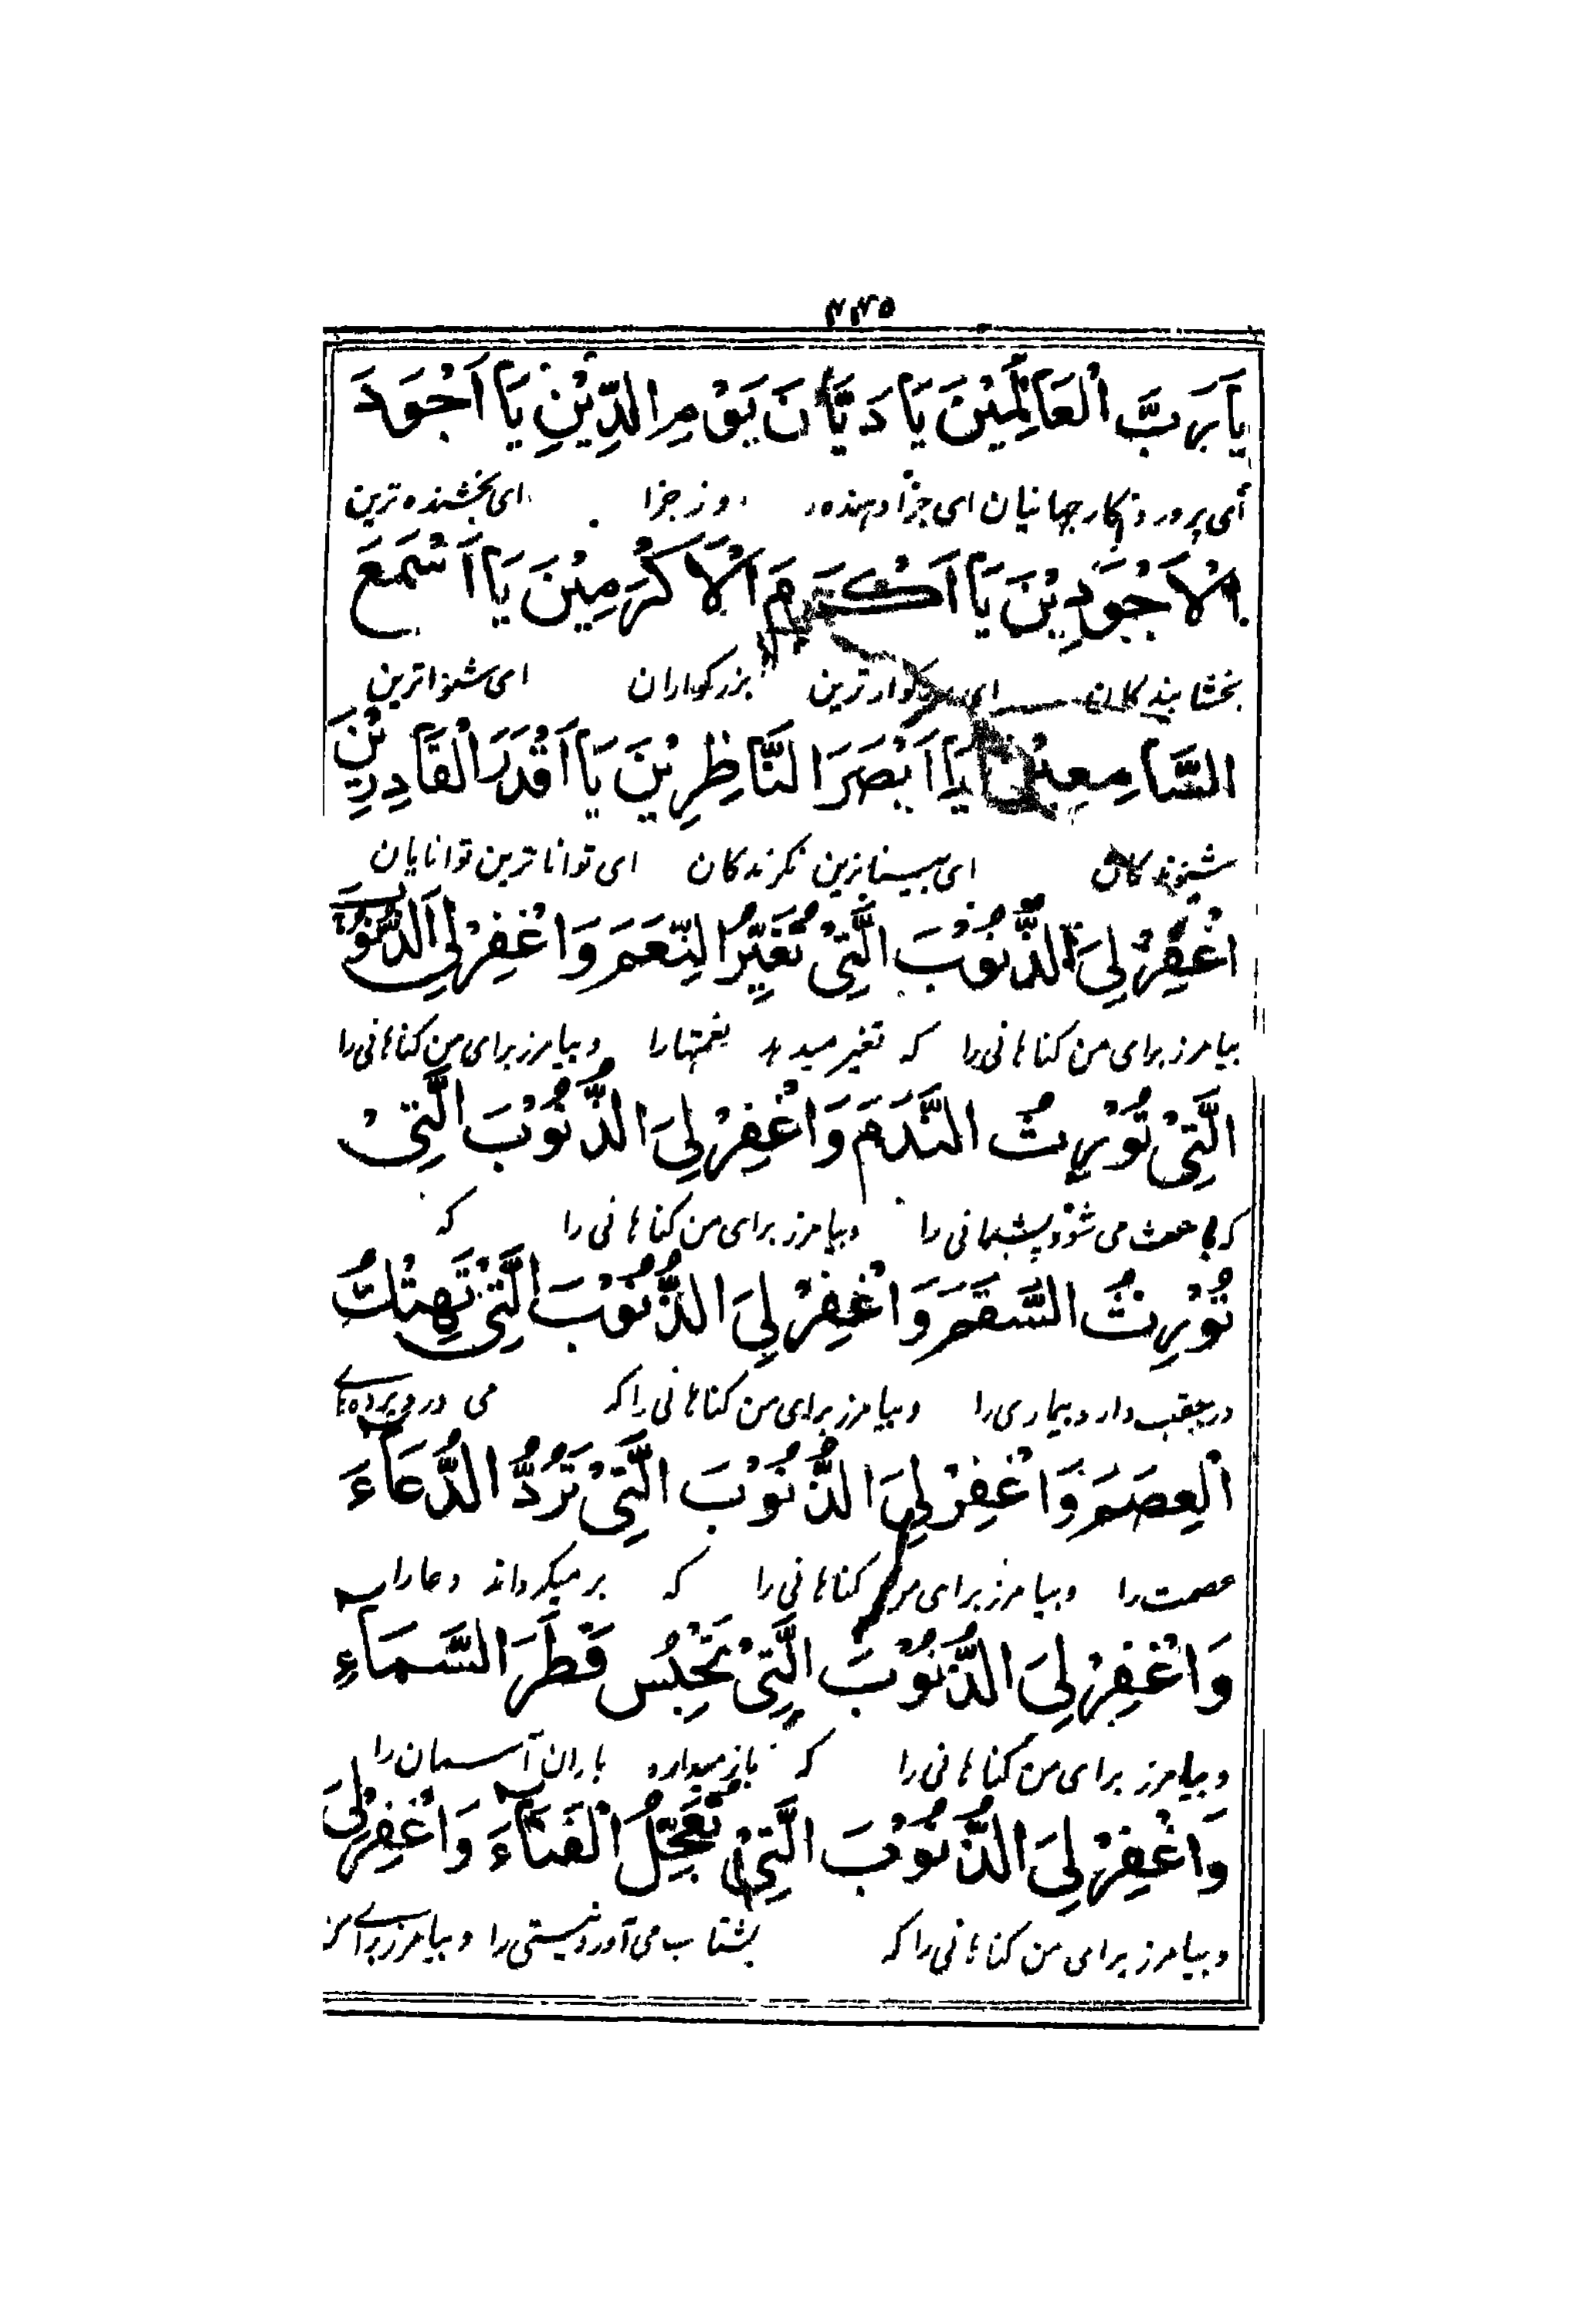 ۲۳۵
يَا رَبَّ الْعَالَمِيْنَ يَا دَيَّانَ يَوْمِ الدِّيْنِ يَا اَجْوَدَ
ای پروردگار جهانیان ای جزا دهنده روز جزا ای بخشنده ترین
الْاَجْوَدِيْنَ يَا اَكْرَمَ الْاَكْرَمِيْنَ يَا اَسْمَعَ
بخشایندکان ای ترین بزرکواران ای شنواترین
السَّامِعِيْنَ يَا اَبْصَرَ النَّاظِرِيْنَ يَا اَقْدَرَ الْقَادِرِيْنَ
شنوندکان ای بیناترین نکرندکان ای تواناترین توانایان
اغْفِرْ لِيَ الذُّنُوْبَ الَّتِيْ تُغَيِّرُ النِّعَمَ وَاغْفِرْ لِيَ الذُّنُوْبَ
بیامرز برای من کناهانی را که تغیر میدهد نعمتها را و بیامرز برای من کناهانی را
الَّتِيْ تُوْرِثُ النَّدَمَ وَاغْفِرْ لِيَ الذُّنُوْبَ الَّتِيْ
که باعث می شود پشیمانی را و بیامرز برای من کناهانی را که
تُوْرِثُ السَّقَمَ وَاغْفِرْ لِيَ الذُّنُوْبَ الَّتِيْ تَهْتِكُ
در عقب دارد بیماری را و بیامرز برای من کناهانی را که می درد پرده‌های
الْعِصَمَ وَاغْفِرْ لِيَ الذُّنُوْبَ الَّتِيْ تَرُدُّ الدُّعَاءَ
عصمت را و بیامرز برای من کناهانی را که بر میکرداند دعا را
وَاغْفِرْ لِيَ الذُّنُوْبَ الَّتِيْ تَحْبِسُ قَطْرَ السَّمَاءِ
و بیامرز برای من کناهانی را که باز میدارد باران آسمان را
وَاغْفِرْ لِيَ الذُّنُوْبَ الَّتِيْ تُعَجِّلُ الْفَنَاءَ وَاغْفِرْ لِيَ
و بیامرز برای من کناهانی را که بشتاب می آورد نیستی را و بیامرز برای من